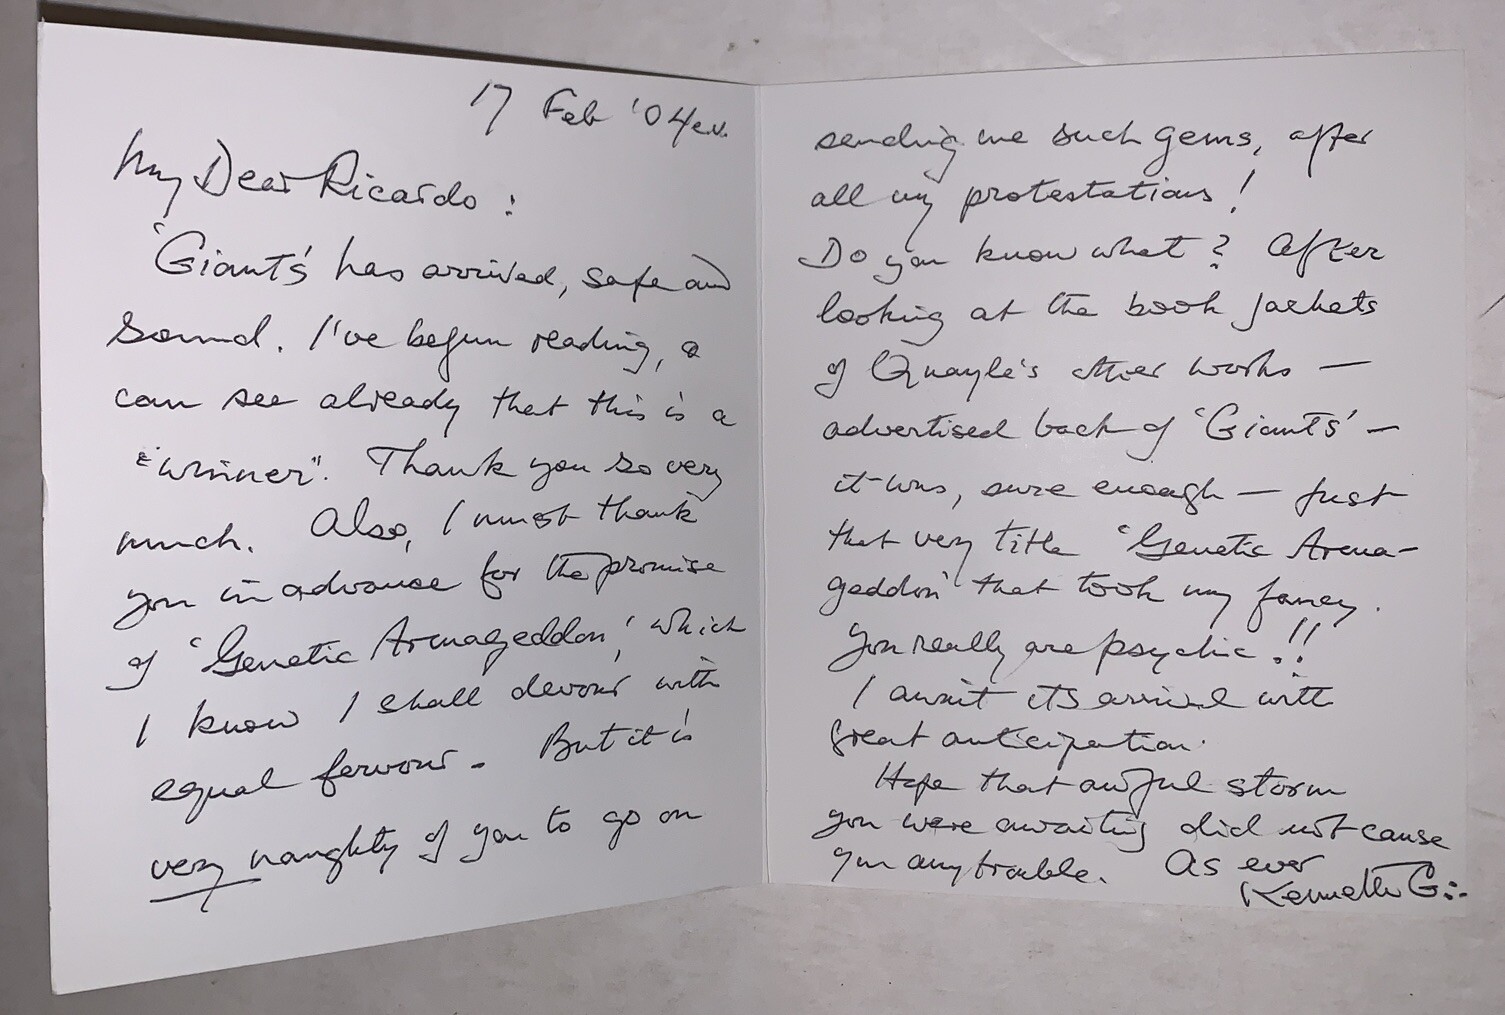 17 Feb '04 e.v.
My Dear Ricardo :
'Giants' has arrived, safe and
sound. I've begun reading, &
can see already that this is a
"winner". Thank you so very
much. Also, I must thank
you in advance for the promise
of 'Genetic Armageddon,' which
I know I shall devour with
equal fervour. But it is
very naughty of you to go on
sending me such gems, after
all my protestations!
Do you know what? After
looking at the book jackets
of Quayle's other works —
advertised back of 'Giants' —
it was, sure enough — just
that very title 'Genetic Arma-
geddon' that took my fancy.
You really are psychic!!
I await its arrival with
great anticipation.
Hope that awful storm
you were awaiting did not cause
you any trouble. As ever
Kenneth G∴